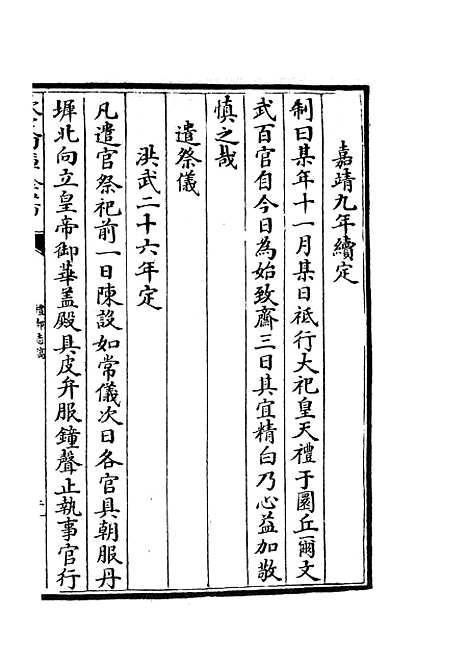 嘉靖九年續定
制曰某年十一月某日祗行大祀皇天禮于圜丘爾文
武百官自今日為始致齋三日其宜精白乃心益加敬
慎之哉
遣祭儀
洪武二十六年定
凡遣官祭祀前一日陳設如常儀次日各官具朝服丹
墀北向立皇帝御華蓋殿具皮弁服鐘聲止執事官行
禮部志稿